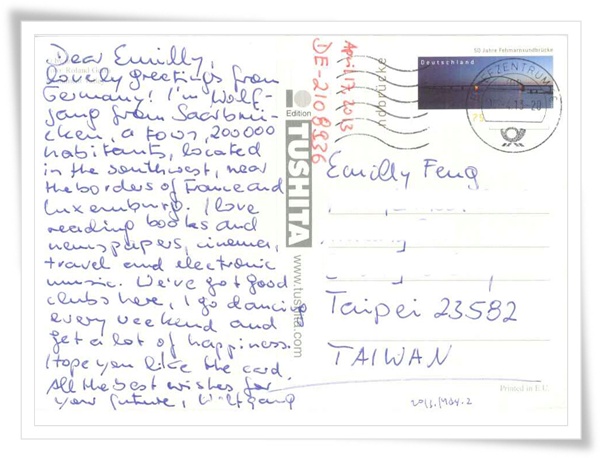 Dear Emilly,
lovely greetings from
Germany! I'm Wolf-
gang from Saarbrü-
cken, a town, 200000
habitants, located
in the southwest, near
the borders of France and
Luxemburg. I love
reading books and
newspapers, cinema,
travel and electronic
music. We've got good
clubs here, I go dancing
every weekend and
get a lot of happiness.
I hope you like the card.
All the best wishes for
your future, Wolfgang
April 17, 2013
DE-2108936
Edition
TUSHITA
www.tushita.com
50 Jahre Fehmarnsundbrücke
Deutschland
ndbrücke
BRIEFZENTRUM
Emilly Feng
Taipei 23582
TAIWAN
Printed in E.U.